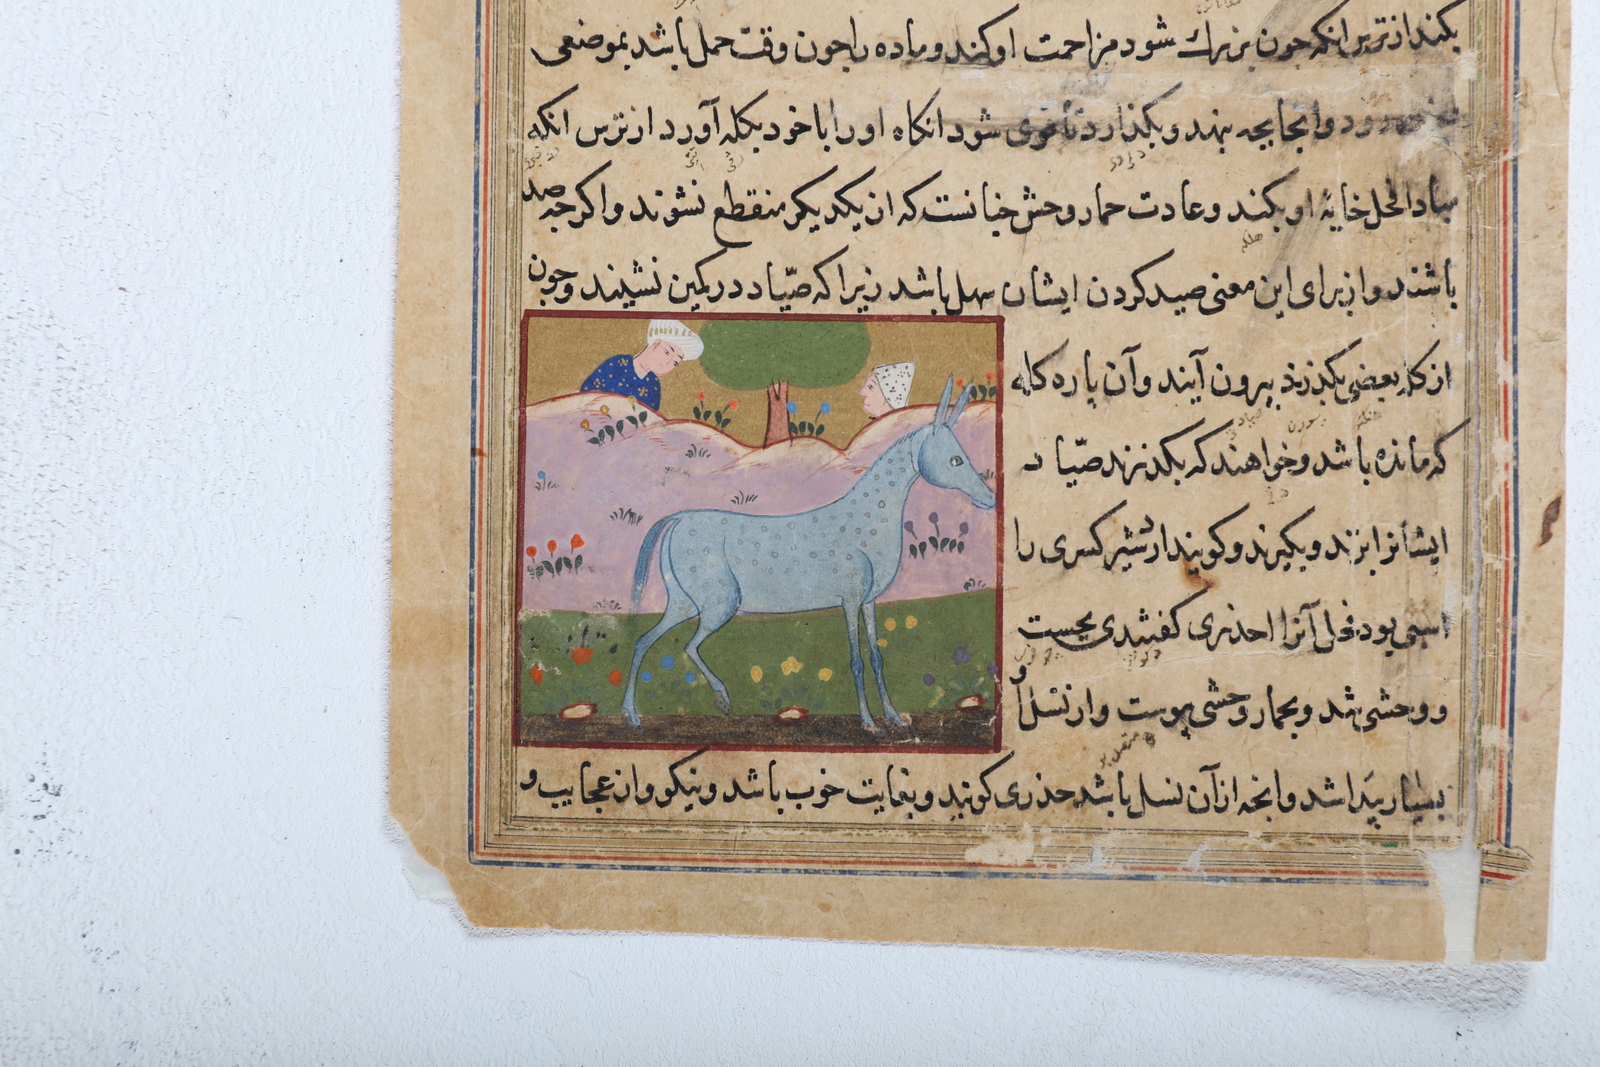 بکند از ترس انکه چون بزرك شود مزاحمت او کند و ماده را چون وقت حمل باشد بموضعی
رود و انجا بچه بنهد و بکذارد تا قوی شود انکاه او را با خود بکله آورد از ترس انکه
مبادا الفحل خایۀ او بکند و عادت حمار وحش چنانست که از یکدیکر منقطع نشوند و اکر چه صد
باشند و از برای این معنی صید کردن ایشان سهل باشد زیرا که صیّاد در کمین نشیند و چون
از کله بعضی بکذرند بیرون آیند و آن پاره کله
که مانده باشد و خواهند که بکذرند صیّاد
ایشانرا بزند و بکیرند و کویند اردشیر کسری را
اسبی بود فحل آنرا اخدری کفتندی بجست
و وحشی شد و بحمار وحشی پیوست و از نسل او
بسیار پیدا شد و انچه از آن نسل باشد خدری کویند و بغایت خوب باشد و نیکو و از عجایب و